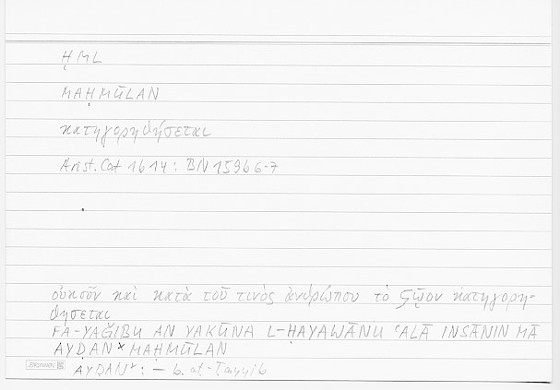 ḤML
MAḤMŪLAN
κατηγορηθήσεται
Arist. Cat 1b14: BN 159b6-7
οὐκοῦν καὶ κατὰ τοῦ τινὸς ἀνθρώπου τὸ ζῷον κατηγορη-
θήσεται
FA-YAǦIBU AN YAKŪNA L-ḤAYAWĀNU ʿALĀ INSĀNIN MĀ
AYḌAN* MAḤMŪLAN
AYḌAN*: — b. aṭ-Ṭayyib